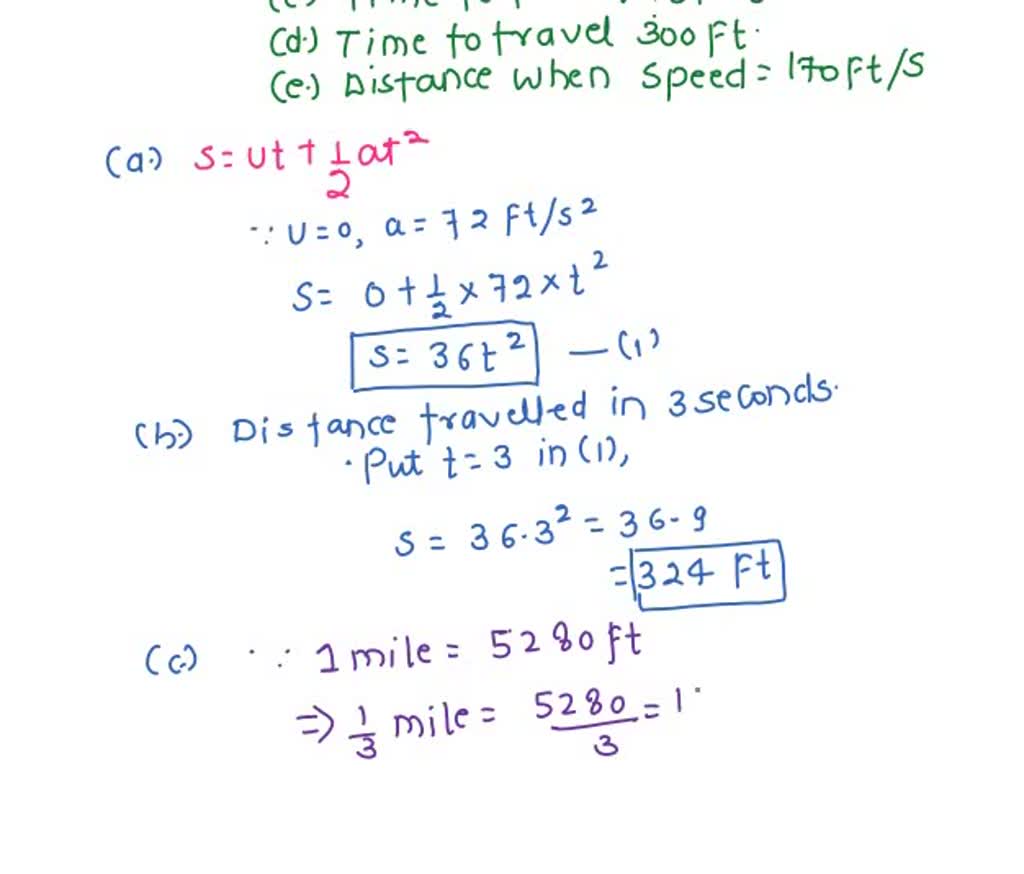 (d.) Time to travel 300 Ft.
(e.) Distance when speed = 170 Ft/s
(a.) s = ut + 1/2 at²
∵ u = 0, a = 72 Ft/s²
s = 0 + 1/2 × 72 × t²
s = 36t² — (1)
(b.) Distance travelled in 3 seconds.
. Put t = 3 in (1),
s = 36·3² = 36·9
= 324 Ft
(c.) ∵ 1 mile = 5280 ft
⇒ 1/3 mile = 5280/3 = 1